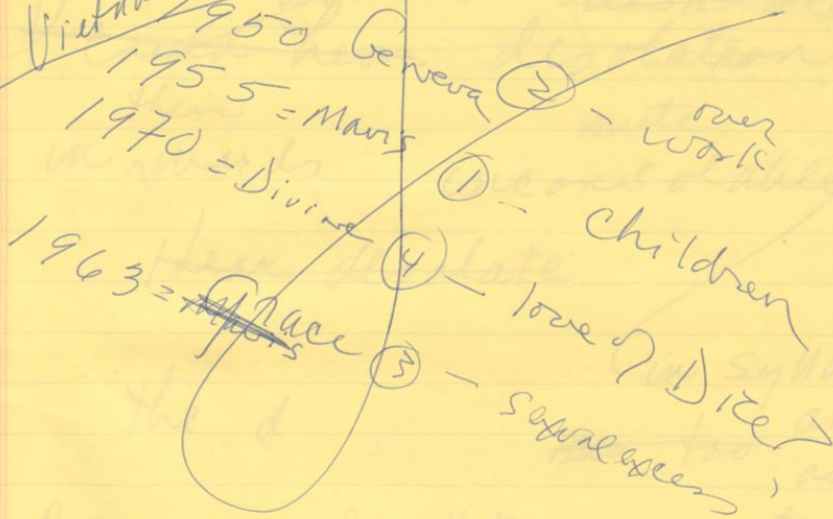 Vietnam
1950 Geneva ② - over work
1955 = Mavis ① - children
1970 = Divine ④ - love of
1963 = Grace ③ - sexual excess